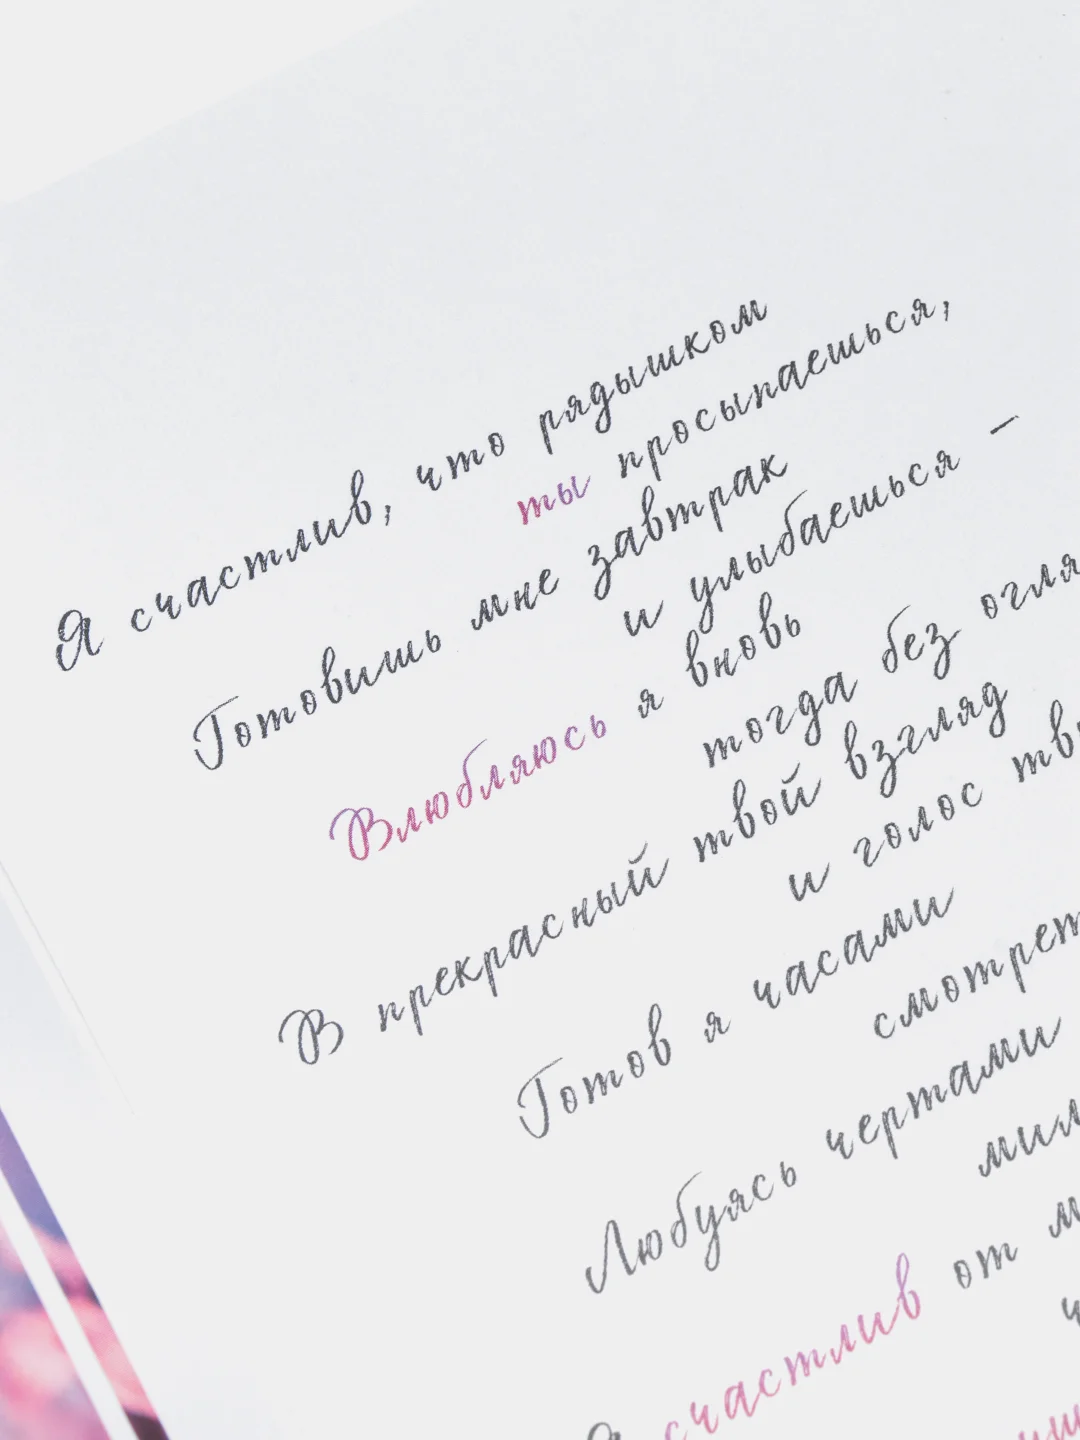 Я счастлив, что рядышком
ты просыпаешься,
Готовишь мне завтрак
и улыбаешься –
Влюбляюсь я вновь
тогда без
В прекрасный твой взгляд
и голос
Готов я часами
Любуясь чертами
счастлив от